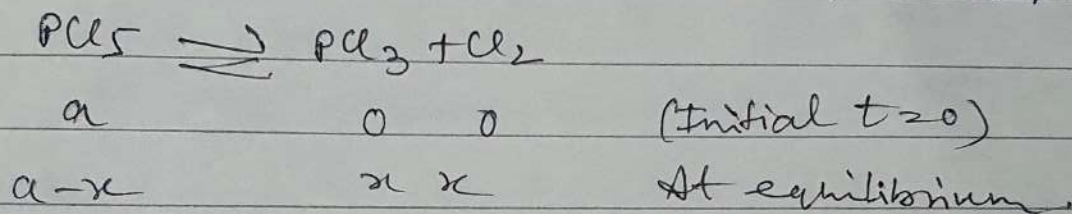 PCl5 ⇌ PCl3 + Cl2
a 0 0 (Initial t=0)
a-x x x At equilibrium.